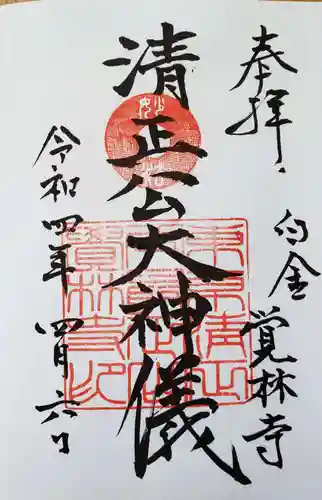 奉拝
白金
覚林寺
清正公大神儀
令和四年四月六日